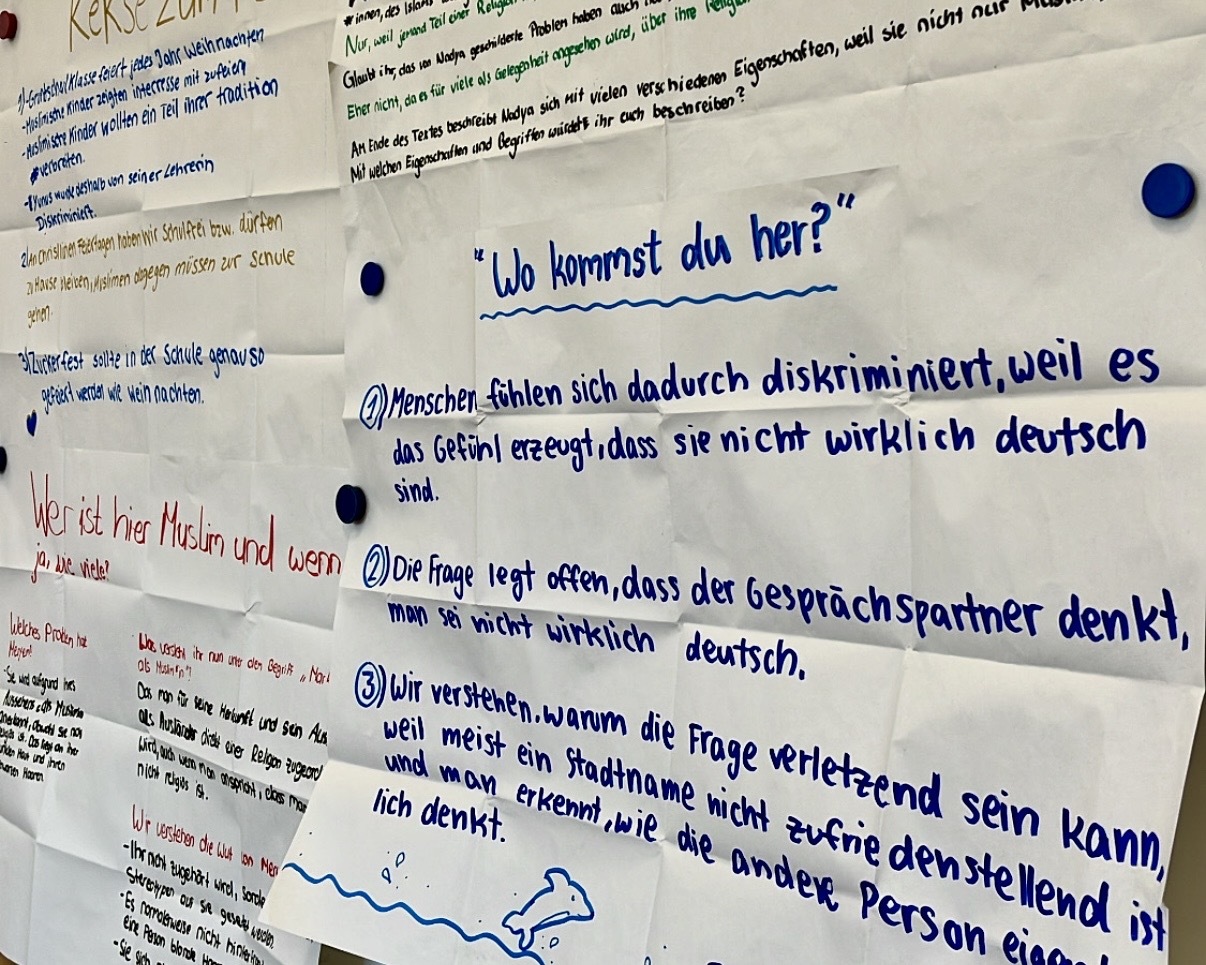 Kekse zum
1)-Grundschulklasse feiert jedes Jahr Weihnachten
-Muslimische Kinder zeigten interesse mit zufeiern
-Muslimische Kinder wollten ein Teil ihrer tradition
verbreiten.
Yunus wurde deshalb von seiner Lehrerin
Diskriminiert.
2) An Christlichen Feiertagen haben wir Schulfrei bzw. dürfen
zu Hause bleiben, Muslimen dagegen müssen zur Schule
gehen.
3) Zuckerfest sollte in der Schule genauso
gefeiert werden wie weinachten.
Wer ist hier Muslim und wenn
ja, wie viele?
Welches Problem hat
-Sie wird aufgrund ihres
Aussehens als Muslima
obwohl sie nicht
ist. Das liegt an ihrer
Haut und ihren
Haaren
Was versteht ihr nun unter dem Begriff „
als Muslim*in"?
Das man für seine Herkunft und sein
als Ausländer direkt einer Religion
wird, auch wenn man anspricht, dass man
nicht religiös ist.
Wir verstehen die Wut von
-Ihr nicht zugehört wird,
Stereotypen auf sie gesetzt werden
-Es normalerweise nicht
eine Person blonde
-Sie sich
#innen, des Islams
Nur, weil jemand Teil einer
Glaubt ihr, das von Nadya geschilderte Problem haben auch
Eher nicht, da es für viele als Gelegenheit angesehen wird, über ihre
Am Ende des Textes beschreibt Nadya sich mit vielen verschiedenen Eigenschaften, weil sie nicht nur
Mit welchen Eigenschaften und Begriffen würdets ihr euch beschreiben?
"Wo kommst du her?"
1) Menschen fühlen sich dadurch diskriminiert, weil es
das Gefühl erzeugt, dass sie nicht wirklich deutsch
sind.
2) Die Frage legt offen, dass der Gesprächspartner denkt,
man sei nicht wirklich deutsch.
3) Wir verstehen, warum die Frage verletzend sein kann,
weil meist ein Stadtname nicht zufriedenstellend ist
und man erkennt, wie die andere Person
lich denkt.